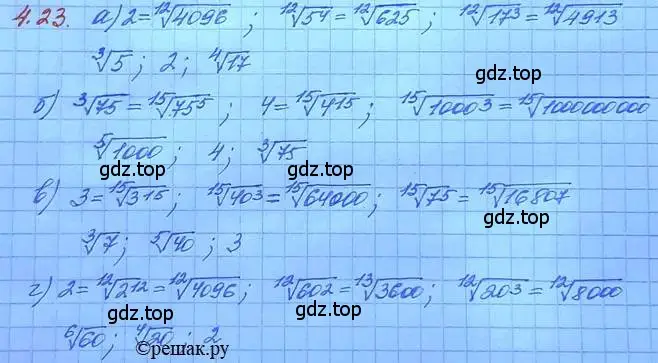 4.23. а) 2 = ¹²√4096 ; ¹²√5⁴ = ¹²√625 ; ¹²√17³ = ¹²√4913
³√5 ; 2 ; ⁴√17
gdz.top gdz.top
б) ³√75 = ¹⁵√75⁵ ; 4 = ¹⁵√4¹⁵ ; ¹⁵√1000³ = ¹⁵√1000000000
⁵√1000 ; 4 ; ³√75
gdz.top gdz.top
в) 3 = ¹⁵√3¹⁵ ; ¹⁵√40³ = ¹⁵√64000 ; ¹⁵√7⁵ = ¹⁵√16807
gdz.top
³√7 ; ⁵√40 ; 3
gdz.top
г) 2 = ¹²√2¹² = ¹²√4096 ; ¹²√60² = ¹³√3600 ; ¹²√20³ = ¹²√8000
gdz.top gdz.top
⁶√60 ; ⁴√20 ; 2
©решак.ру